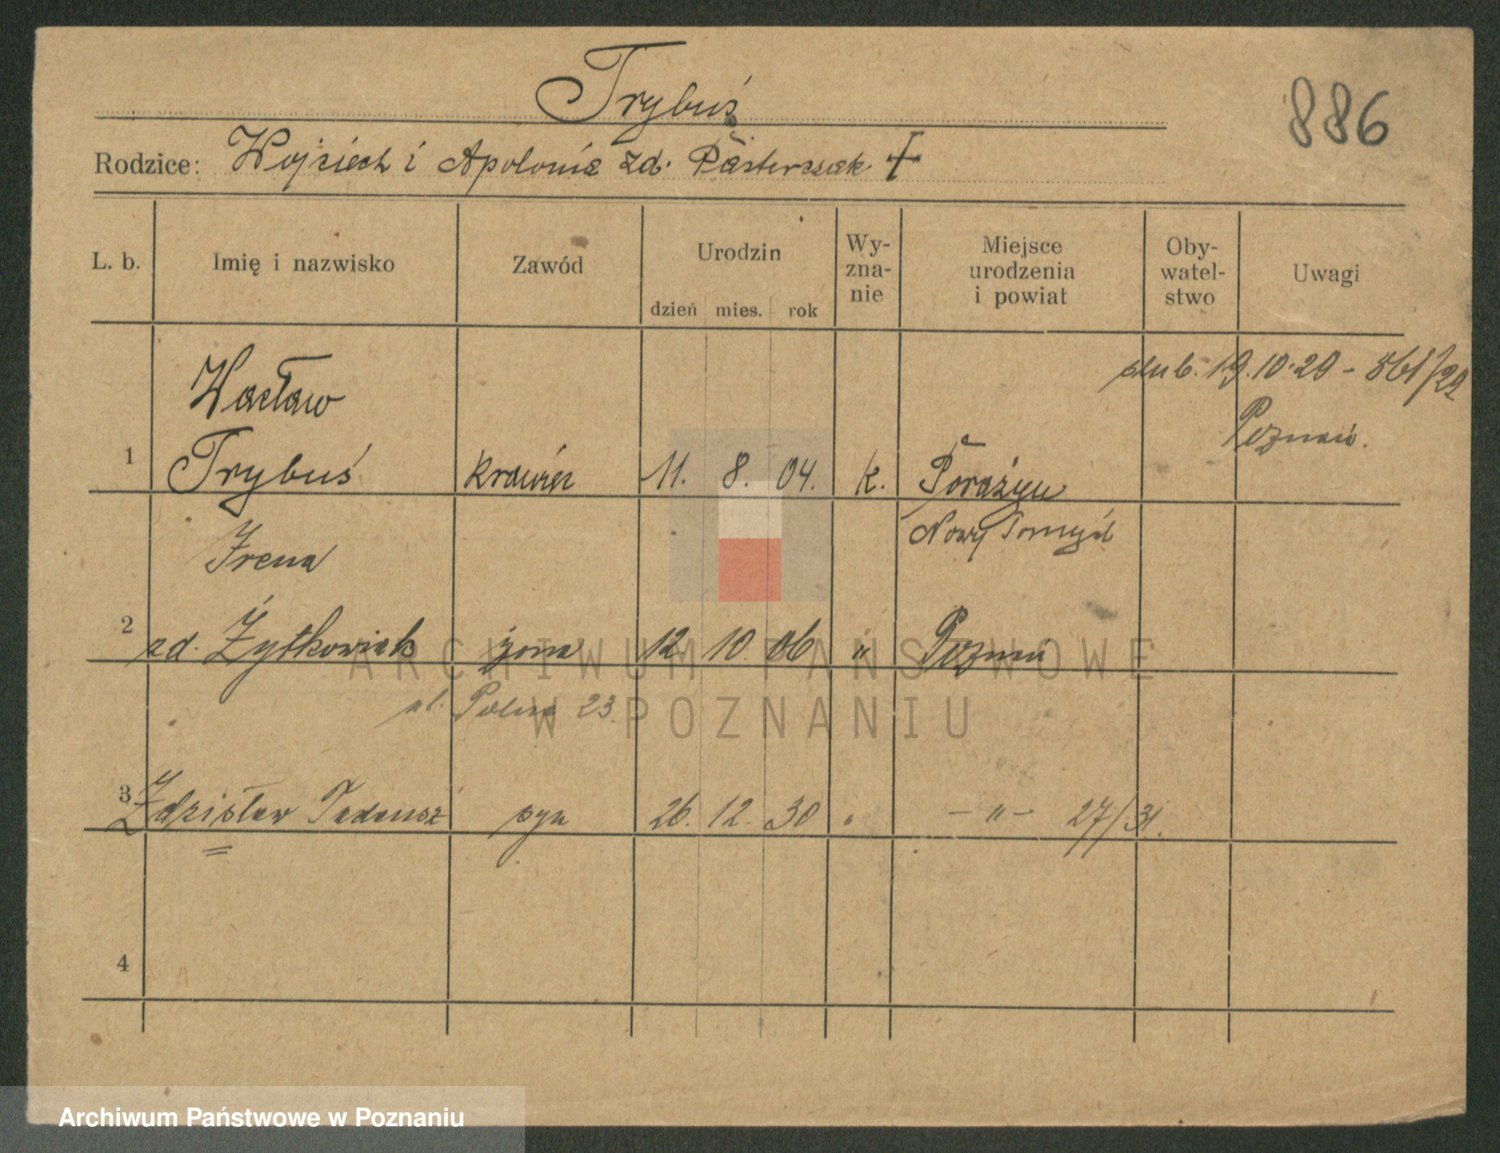 Trybuś
886
Rodzice: Wojciech i Apolonia zd. Pasterczak +
L. b. Imię i nazwisko Zawód Urodzin dzień mies. rok Wy-zna-nie Miejsce urodzenia i powiat Oby-watel-stwo Uwagi
ślub. 19.10.29 - 861/29
Poznań.
Wacław
1 Trybuś krawiec 11. 8. 04. k. Porażyn
Nowy Tomyśl
Irena
2 zd. Żytkowiak żona 12 10. 06 " Poznań
ul. Polna 23.
3 Zdzisław Tadeusz syn 26. 12. 30 " - " - 27/31.
4
ARCHIWUM PAŃSTWOWE
W POZNANIU
Archiwum Państwowe w Poznaniu